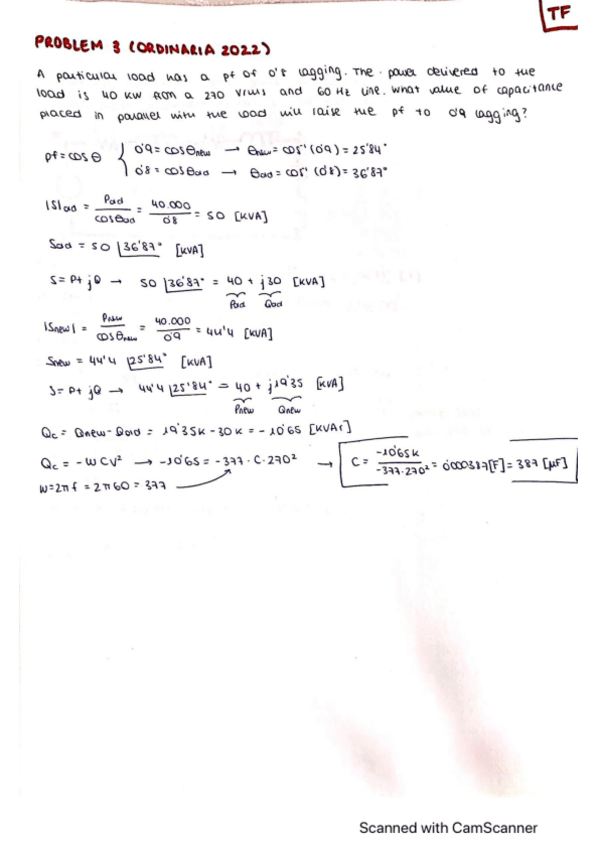 TF
PROBLEM 3 (ORDINARIA 2022)
A particular load has a pf of 0'8 lagging. The power delivered to the
load is 40 KW from a 270 Vrms and 60 Hz line. What value of capacitance
placed in parallel with the load will raise the pf to 0'9 lagging?
pf = cosθ { 0'9 = cosθnew → θnew = cos⁻¹ (0'9) = 25'84°
0'8 = cosθold → θold = cos⁻¹ (0'8) = 36'87°
|S|old = Pold/cosθold = 40.000/0'8 = 50 [KVA]
Sold = 50 ∠36'87° [KVA]
S = P + jQ → 50 ∠36'87° = 40 + j30 [KVA]
Pold Qold
|Snew| = Pnew/cosθnew = 40.000/0'9 = 44'4 [KVA]
Snew = 44'4 ∠25'84° [KVA]
S = P + jQ → 44'4 ∠25'84° = 40 + j19'35 [KVA]
Pnew Qnew
Qc = Qnew - Qold = 19'35K - 30K = -10'65 [KVAr]
Qc = -WCV² → -10'65 = -377·C·270² → C = -10'65K/-377·270² = 0'000387[F] = 387 [μF]
W = 2πf = 2π60 = 377
Scanned with CamScanner